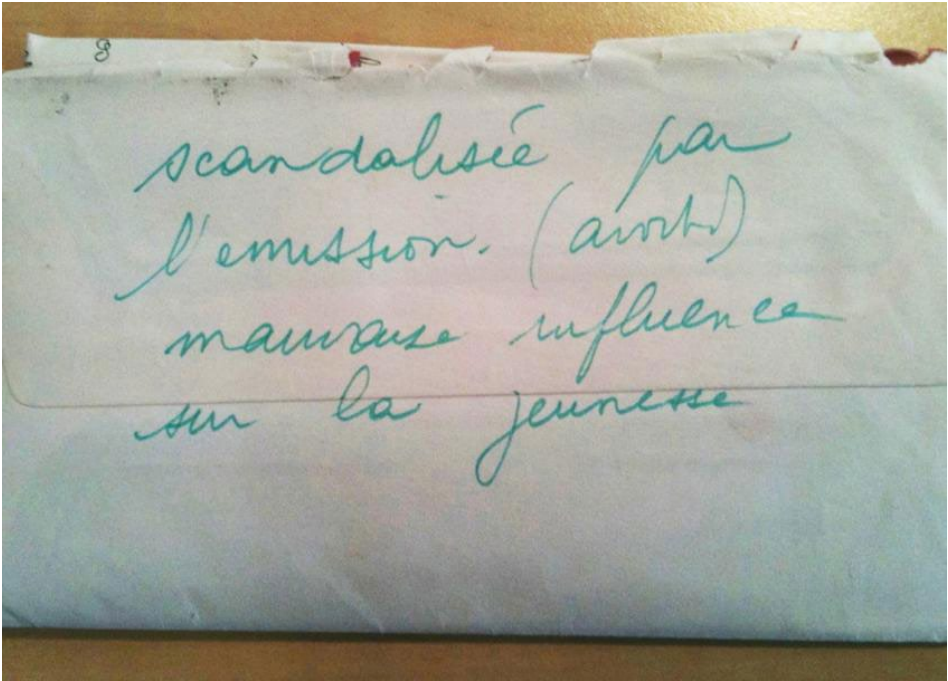 scandalisée par
l'emission.
mauvaise influence
sur la jeunesse